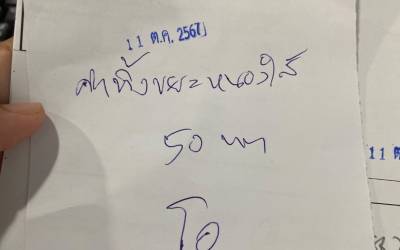 11 ต.ค. 2567
ค่าทิ้งขยะหนองใส
50 บาท
โอ
11 ต